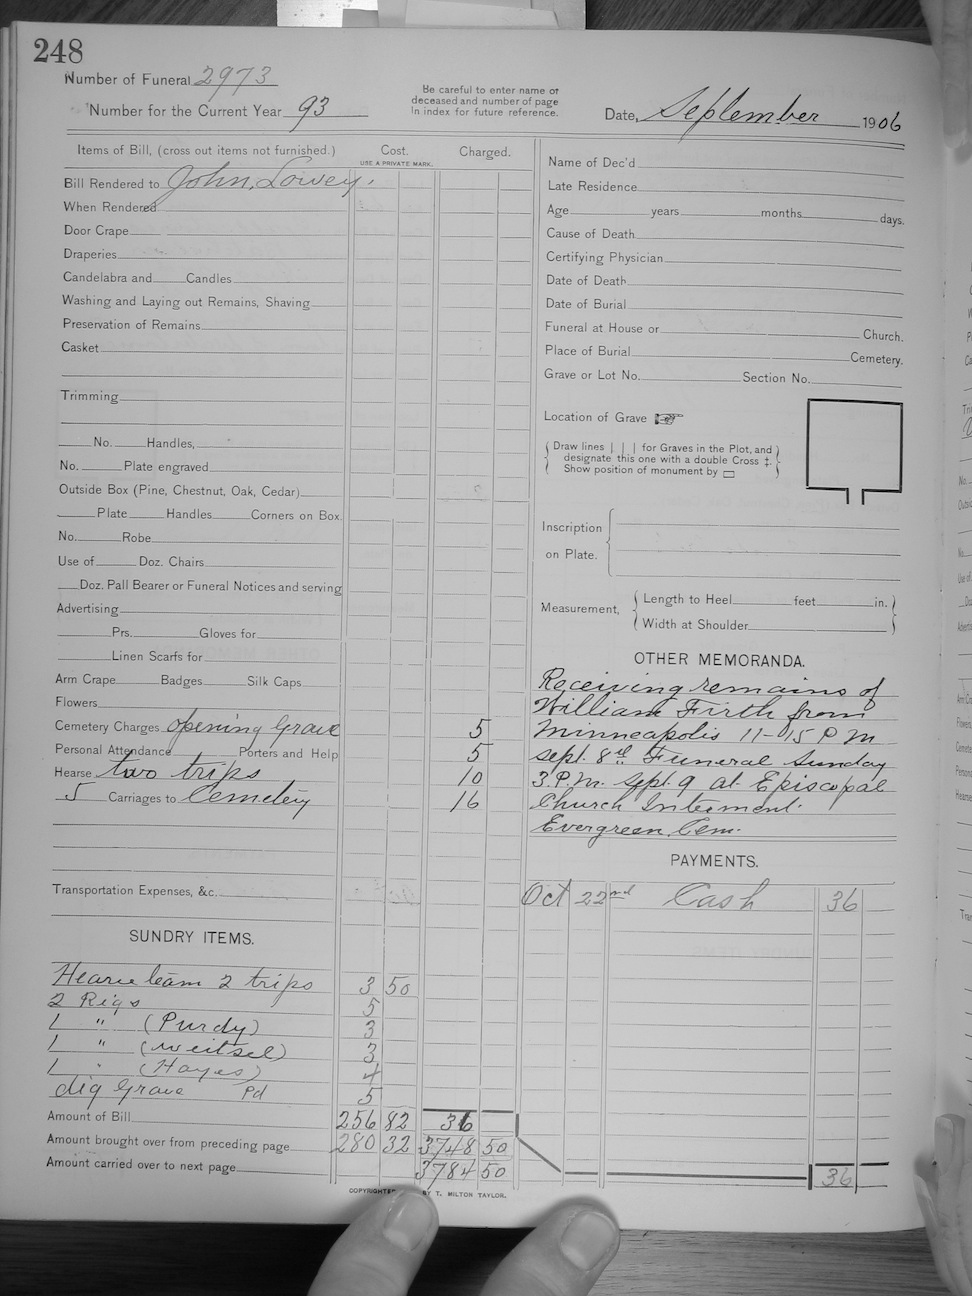 248
Number of Funeral 2973
Number for the Current Year 93
Be careful to enter name of
deceased and number of page
in index for future reference.
Date, September 1906
Items of Bill, (cross out items not furnished.)
Cost.
USE A PRIVATE MARK.
Charged.
Bill Rendered to John Lowey.
When Rendered
Door Crape
Draperies
Candelabra and Candles
Washing and Laying out Remains, Shaving
Preservation of Remains
Casket
Trimming
No. Handles,
No. Plate engraved
Outside Box (Pine, Chestnut, Oak, Cedar)
Plate Handles Corners on Box
No. Robe
Use of Doz. Chairs
Doz. Pall Bearer or Funeral Notices and serving
Advertising
Prs. Gloves for
Linen Scarfs for
Arm Crape Badges Silk Caps
Flowers
Cemetery Charges opening Grave 5
Personal Attendance Porters and Help 5
Hearse two trips 10
5 Carriages to Cemetery 16
Transportation Expenses, &c.
SUNDRY ITEMS.
Hearse team 2 trips 3 50
2 Rigs 5
1 " (Purdy) 3
1 " (Weitsel) 3
1 " (Hayes) 4
dig Grave Pd 5
Amount of Bill 256 82 36
Amount brought over from preceding page 280 32 3748 50
Amount carried over to next page 3784 50
Name of Dec'd
Late Residence
Age years months days.
Cause of Death
Certifying Physician
Date of Death
Date of Burial
Funeral at House or Church.
Place of Burial Cemetery.
Grave or Lot No. Section No.
Location of Grave
Draw lines | | | for Graves in the Plot, and
designate this one with a double Cross ‡.
Show position of monument by
Inscription
on Plate.
Measurement,
Length to Heel feet in.
Width at Shoulder
OTHER MEMORANDA.
Receiving remains of
William Firth from
Minneapolis 11-15 P M
sept. 8th Funeral Sunday
3.P.M. Sept. 9 at Episcopal
Church Interment
Evergreen Cem.
PAYMENTS.
Oct 22nd Cash 36
36
COPYRIGHTED BY T. MILTON TAYLOR.